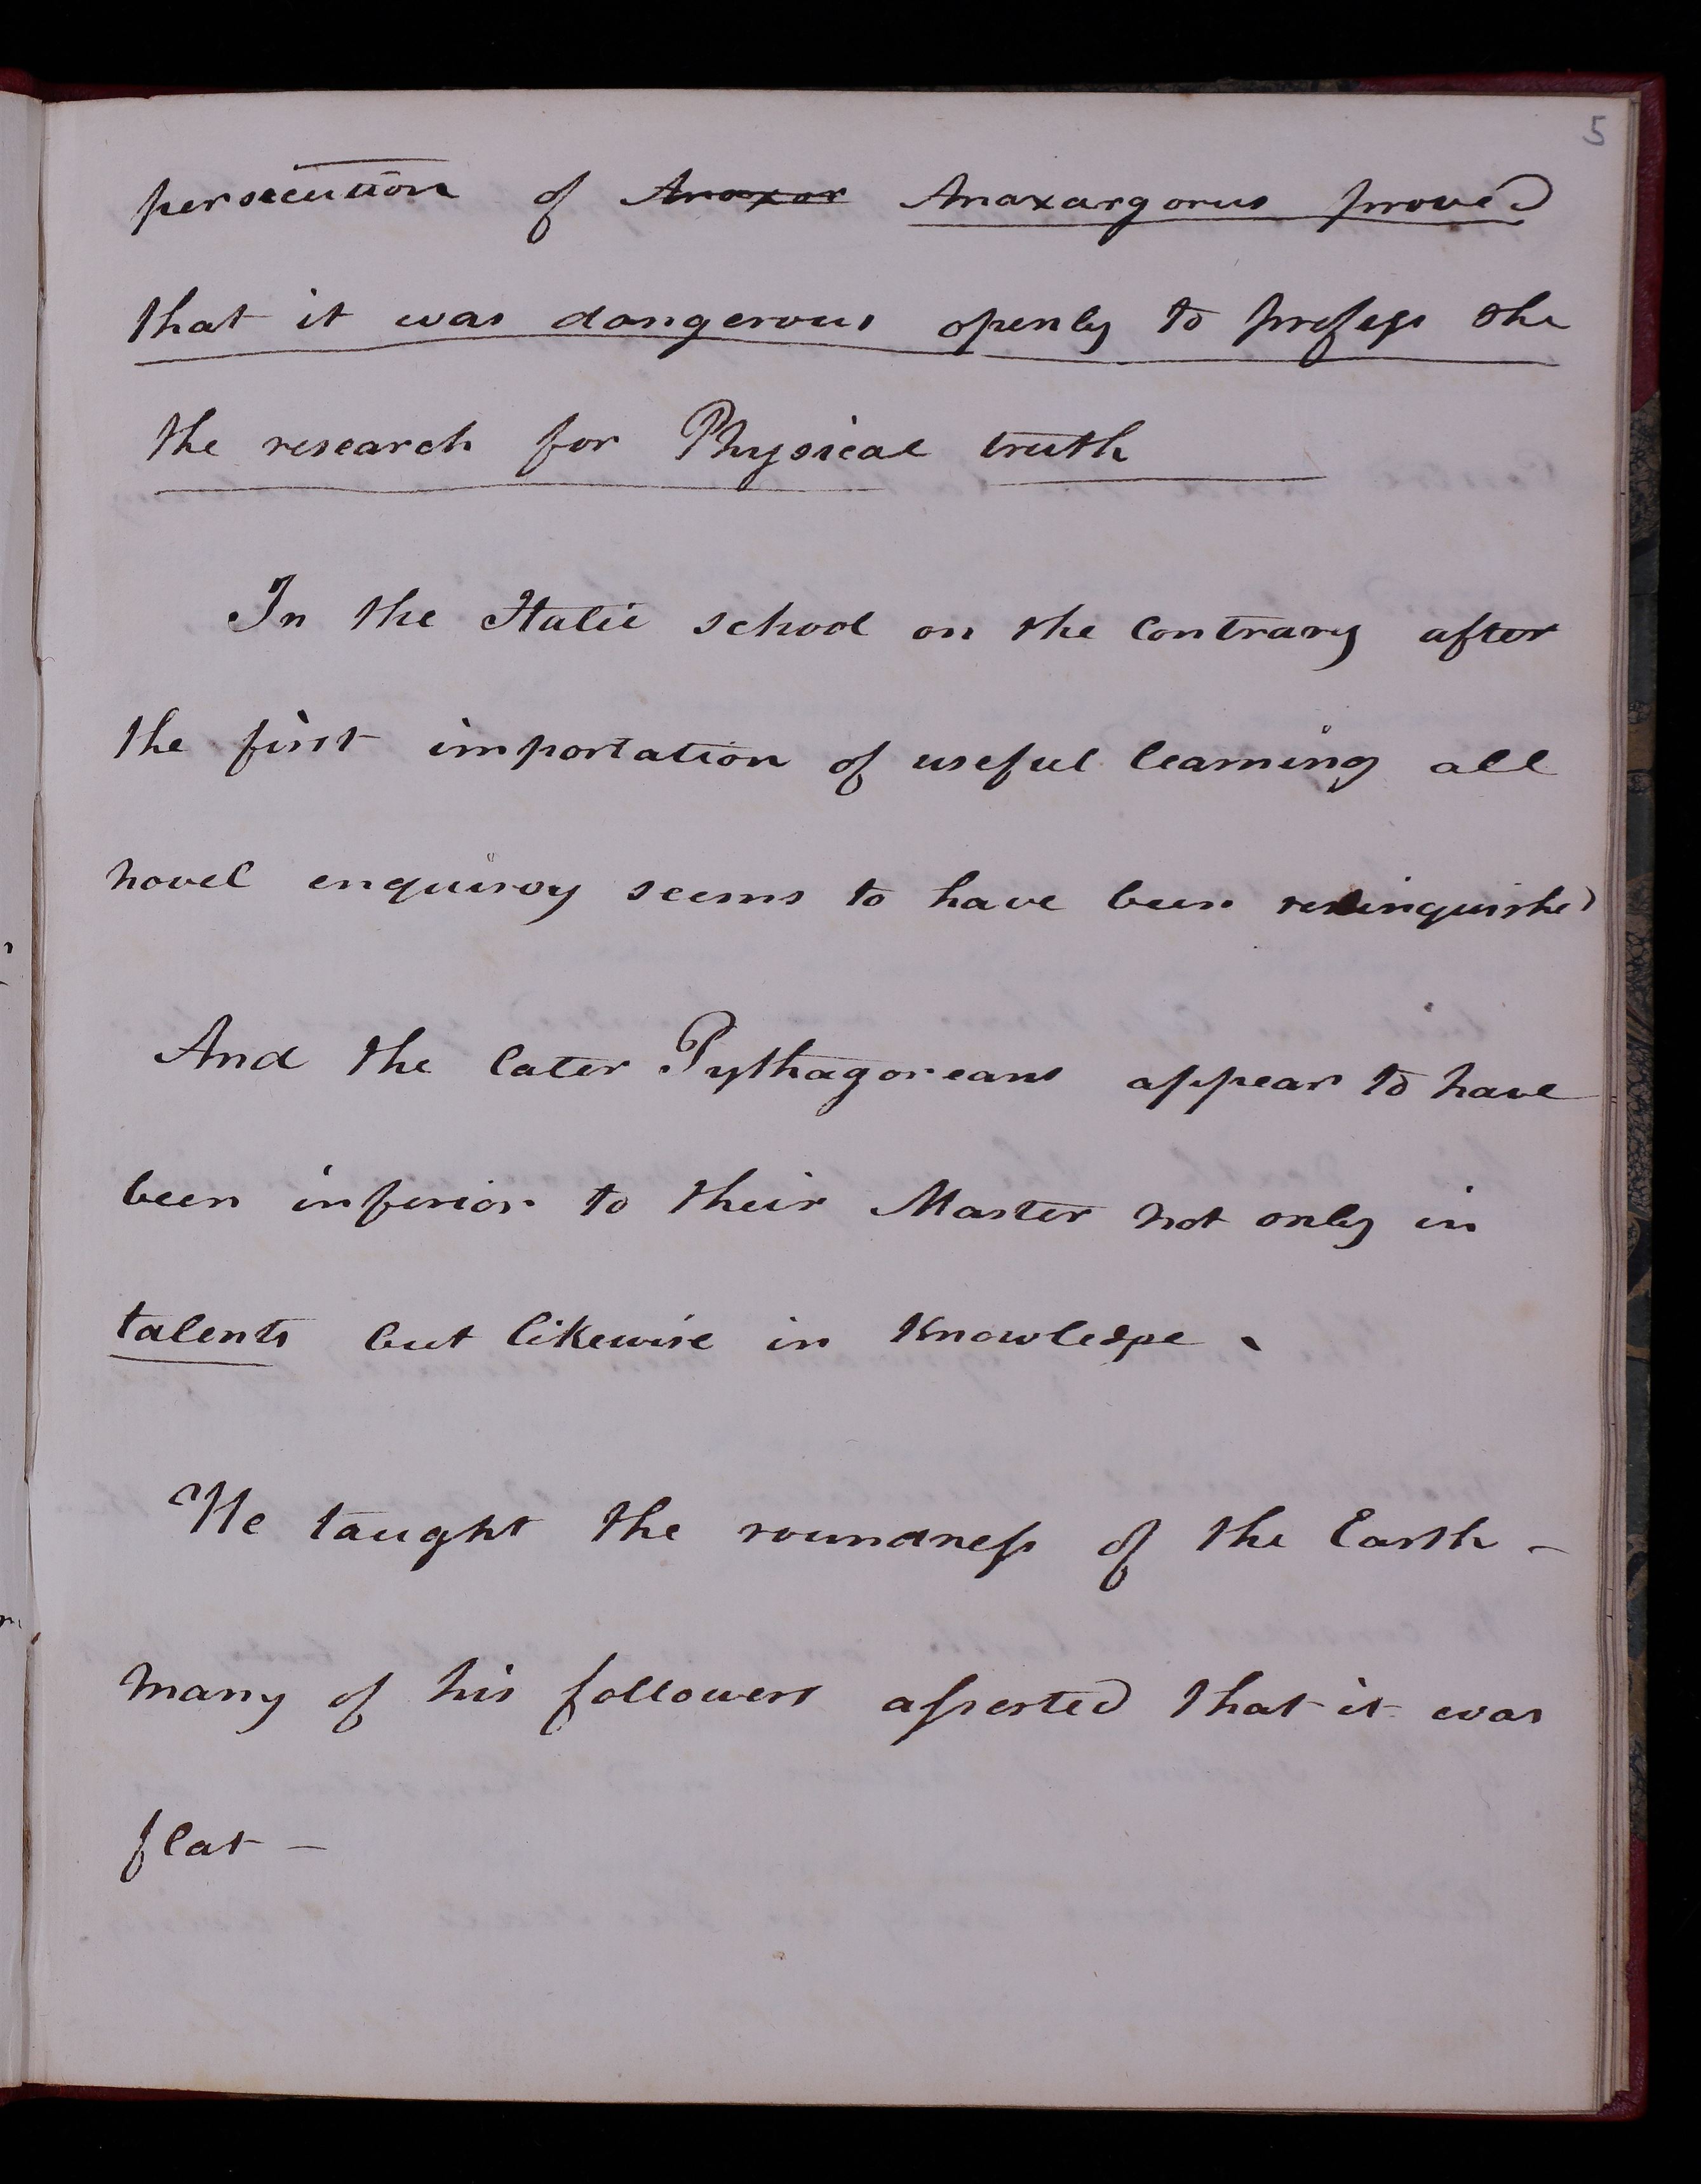 5
persecution of Anaxar Anaxargorus proved
that it was dangerous openly to profess the
the research for Physical truth
In the Italic school on the contrary after
the first importation of useful learning all
novel enquiry seems to have been relinquished
And the later Pythagoreans appear to have
been inferior to their Master not only in
talents but likewise in Knowledge.
He taught the roundness of the Earth -
Many of his followers asserted that it was
flat -